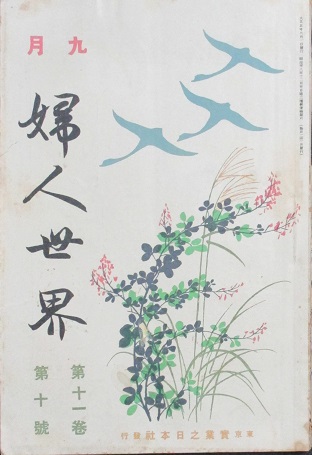 九月
婦人世界
第十一卷
第十號
東京實業之日本社發行